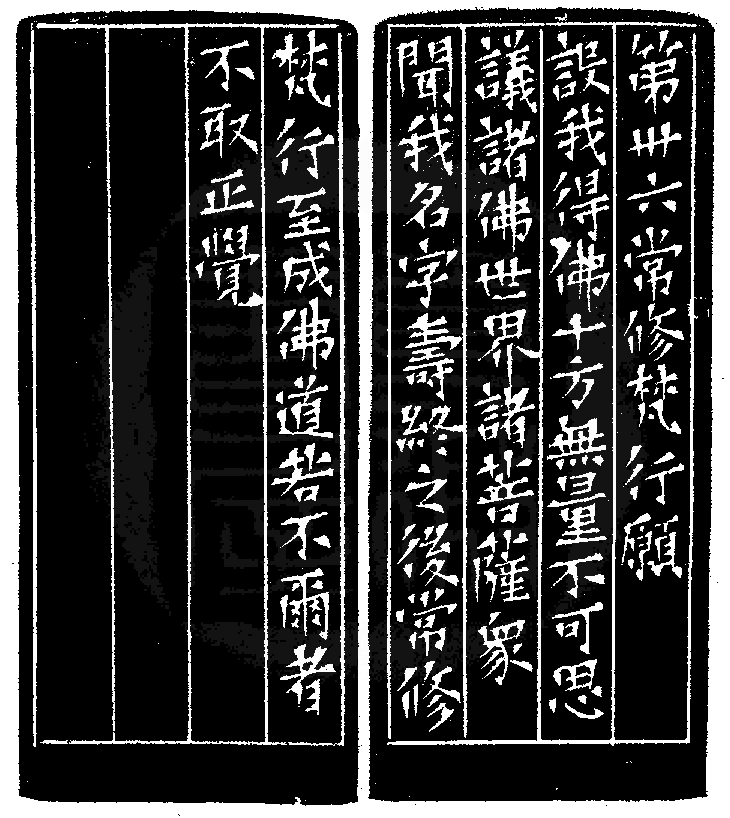 第卅六常修梵行願
設我得佛十方無量不可思
議諸佛世界諸菩薩衆
聞我名字壽終之後常修
梵行至成佛道若不爾者
不取正覺